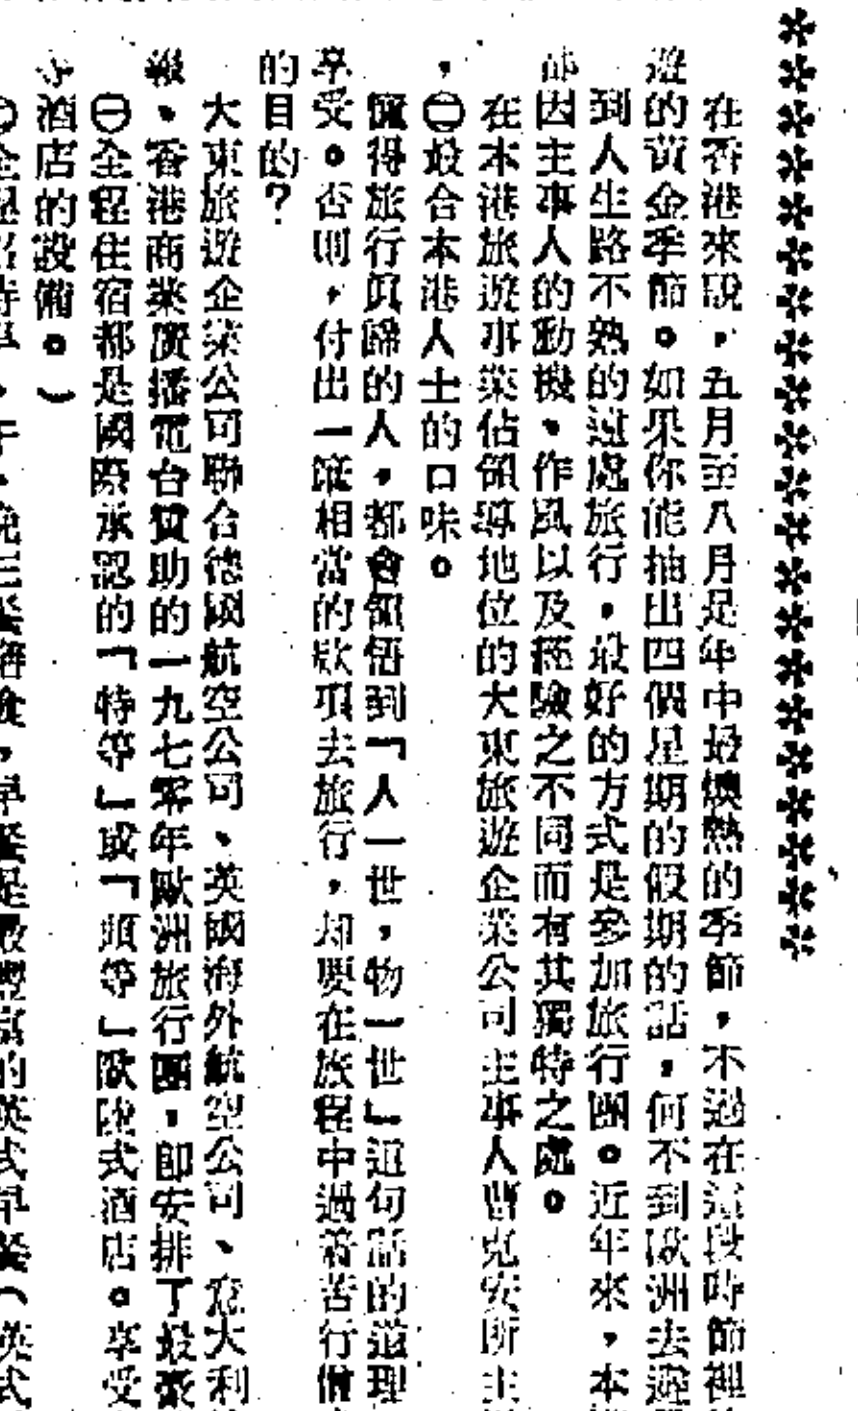 在香港來說，五月至八月是年中最燠熱的季節，不過在這段時節裡
遊的黃金季節。如果你能抽出四個星期的假期的話，何不到歐洲去遊
到人生路不熟的遠處旅行，最好的方式是參加旅行團。近年來，本
都因主事人的動機、作風以及經驗之不同而有其獨特之處。
在本港旅遊事業佔領導地位的大東旅遊企業公司主事人曹克安所主
，㊁最合本港人士的口味。
懂得旅行眞歸的人，都會領悟到「人一世，物一世」這句話的道理
享受。否則，付出一筆相當的款項去旅行，却要在旅程中過着苦行僧
的目的？
大東旅遊企業公司聯合德國航空公司、英國海外航空公司、意大利
報、香港商業廣播電台贊助的一九七零年歐洲旅行團，即安排了最豪
㊀全程住宿都是國際承認的「特等」或「頭等」歐陸式酒店。享受
酒店的設備。）
早餐是最豐富的英式早餐（英式